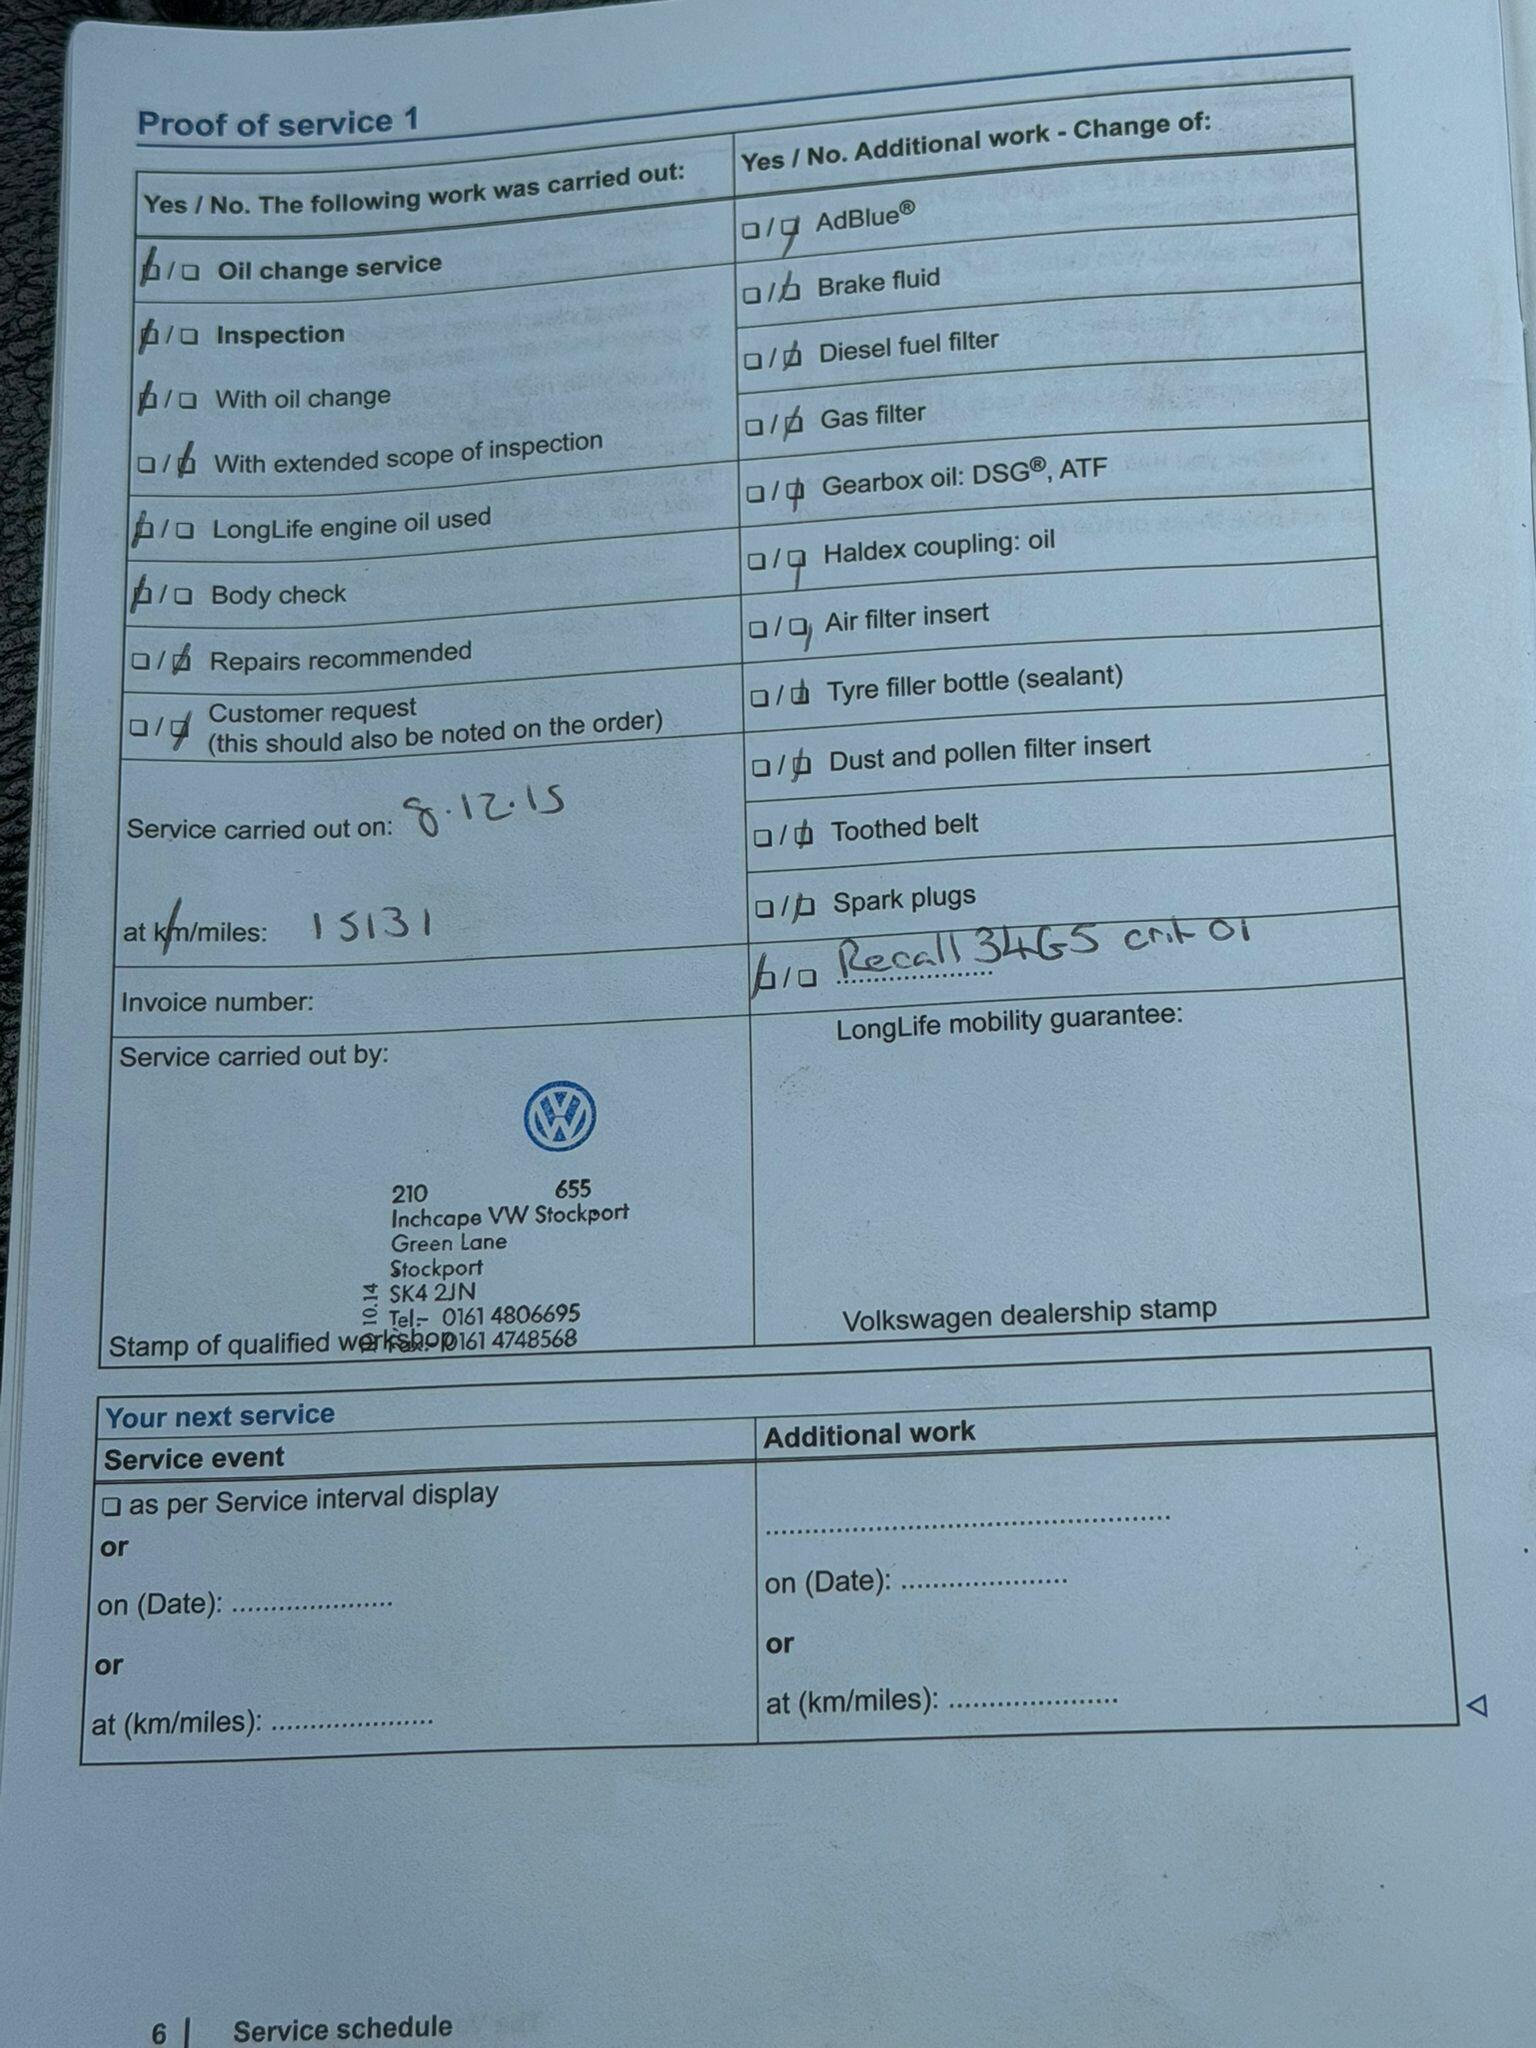 Proof of service 1
Yes / No. The following work was carried out:
☑ / ☐ Oil change service
☑ / ☐ Inspection
☑ / ☐ With oil change
☐ / ☑ With extended scope of inspection
☑ / ☐ LongLife engine oil used
☑ / ☐ Body check
☐ / ☑ Repairs recommended
☐ / ☑ Customer request
(this should also be noted on the order)
Service carried out on: 8.12.15
at km/miles: 15131
Invoice number:
Service carried out by:
210 655
Inchcape VW Stockport
Green Lane
Stockport
SK4 2JN
Tel:- 0161 4806695
0161 4748568
10.14
Stamp of qualified workshop
Yes / No. Additional work - Change of:
☐ / ☑ AdBlue®
☐ / ☑ Brake fluid
☐ / ☑ Diesel fuel filter
☐ / ☑ Gas filter
☐ / ☑ Gearbox oil: DSG®, ATF
☐ / ☑ Haldex coupling: oil
☐ / ☑ Air filter insert
☐ / ☑ Tyre filler bottle (sealant)
☐ / ☑ Dust and pollen filter insert
☐ / ☑ Toothed belt
☐ / ☑ Spark plugs
☑ / ☐ Recall 34G5 crit 01
LongLife mobility guarantee:
Volkswagen dealership stamp
Your next service
Service event
☐ as per Service interval display
or
on (Date): ......................
or
at (km/miles): ......................
Additional work
......................................................
on (Date): ......................
or
at (km/miles): ......................
6 | Service schedule